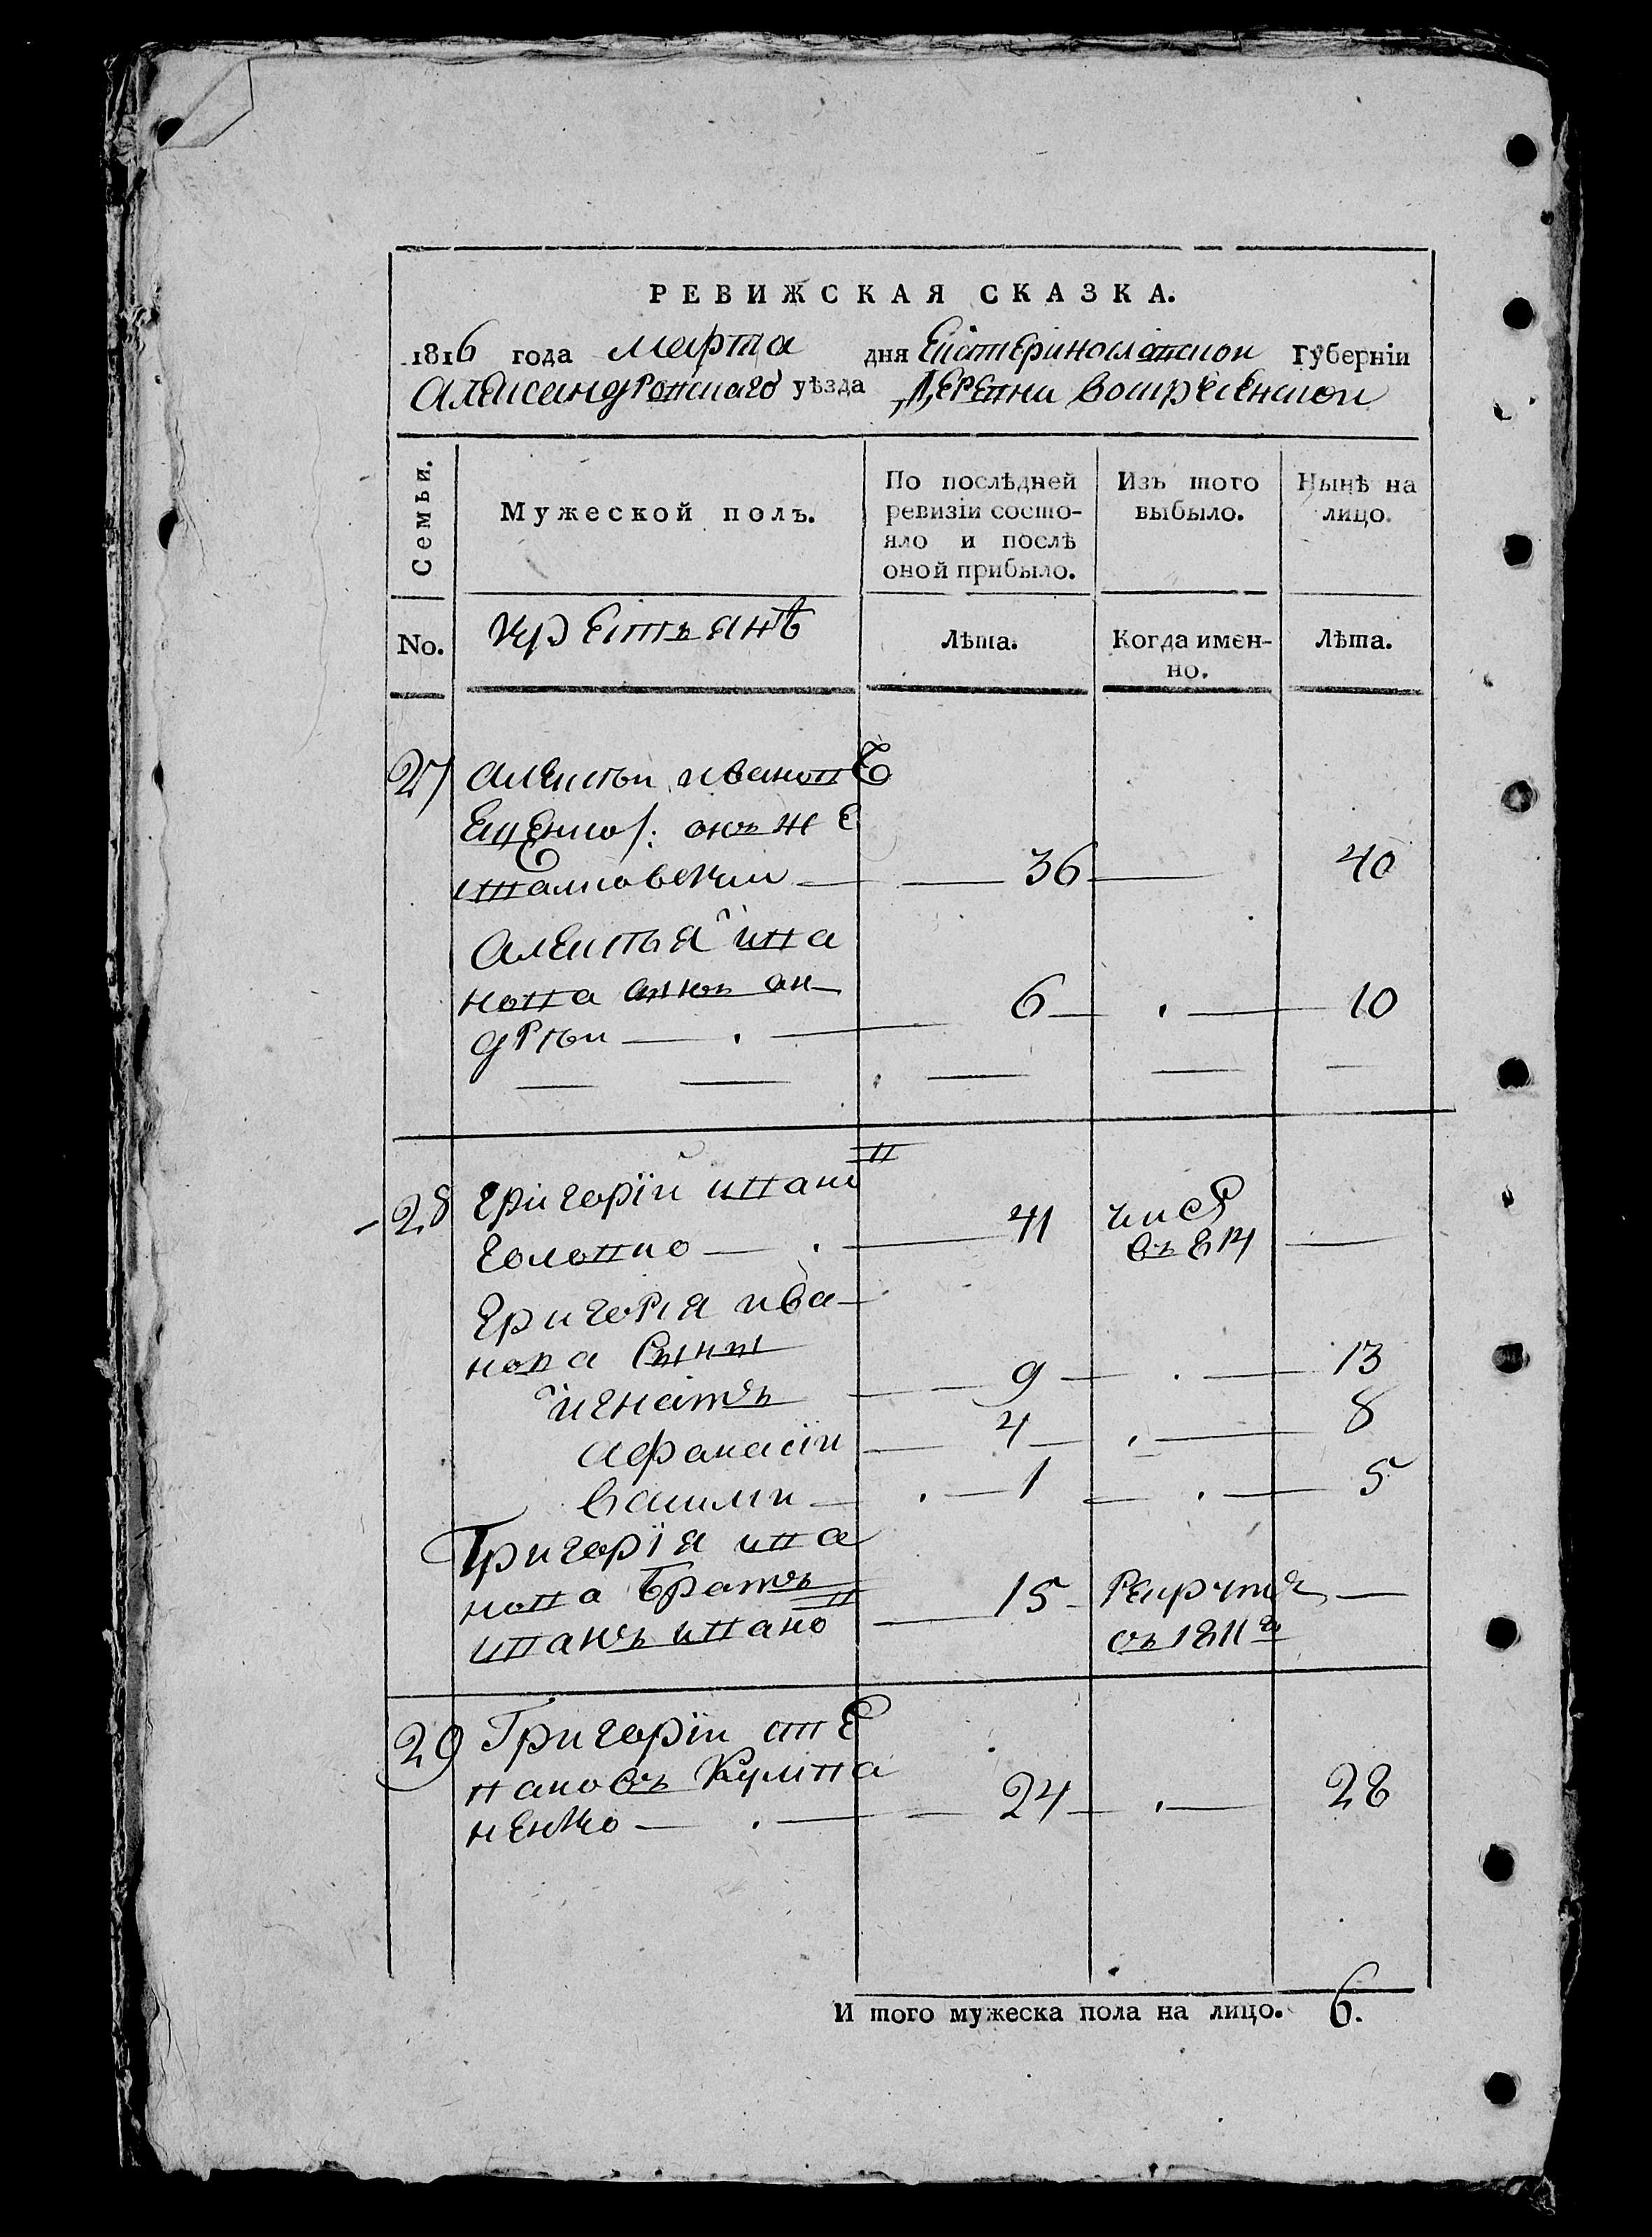 РЕВИЖСКАЯ СКАЗКА.
1816 года марта дня Екатеринославской Губерніи
Александровскаго уѣзда Деревни воскресенской
Семьи. Мужеской полъ. По послѣдней ревизіи состояло и послѣ оной прибыло. Изъ того выбыло. Нынѣ на лицо.
No. крестьянѣ Лѣта. Когда именно. Лѣта.
27 алексѣи ивановъ
онъ же
36 40
алексѣя ива
нова сынъ ан
дрѣи 6 10
28 григорїи ивано в
головко 41 въ 814
григорія ива
нова сыны
игнатъ 9 13
афанасіи 4 8
васили 1 5
Григорїя ива
нова братъ
иванъ ивано в 15 рекрутъ
въ 1811 г
29 Григорїи сте
пановъ
ненко 24 28
И того мужеска пола на лицо. 6.